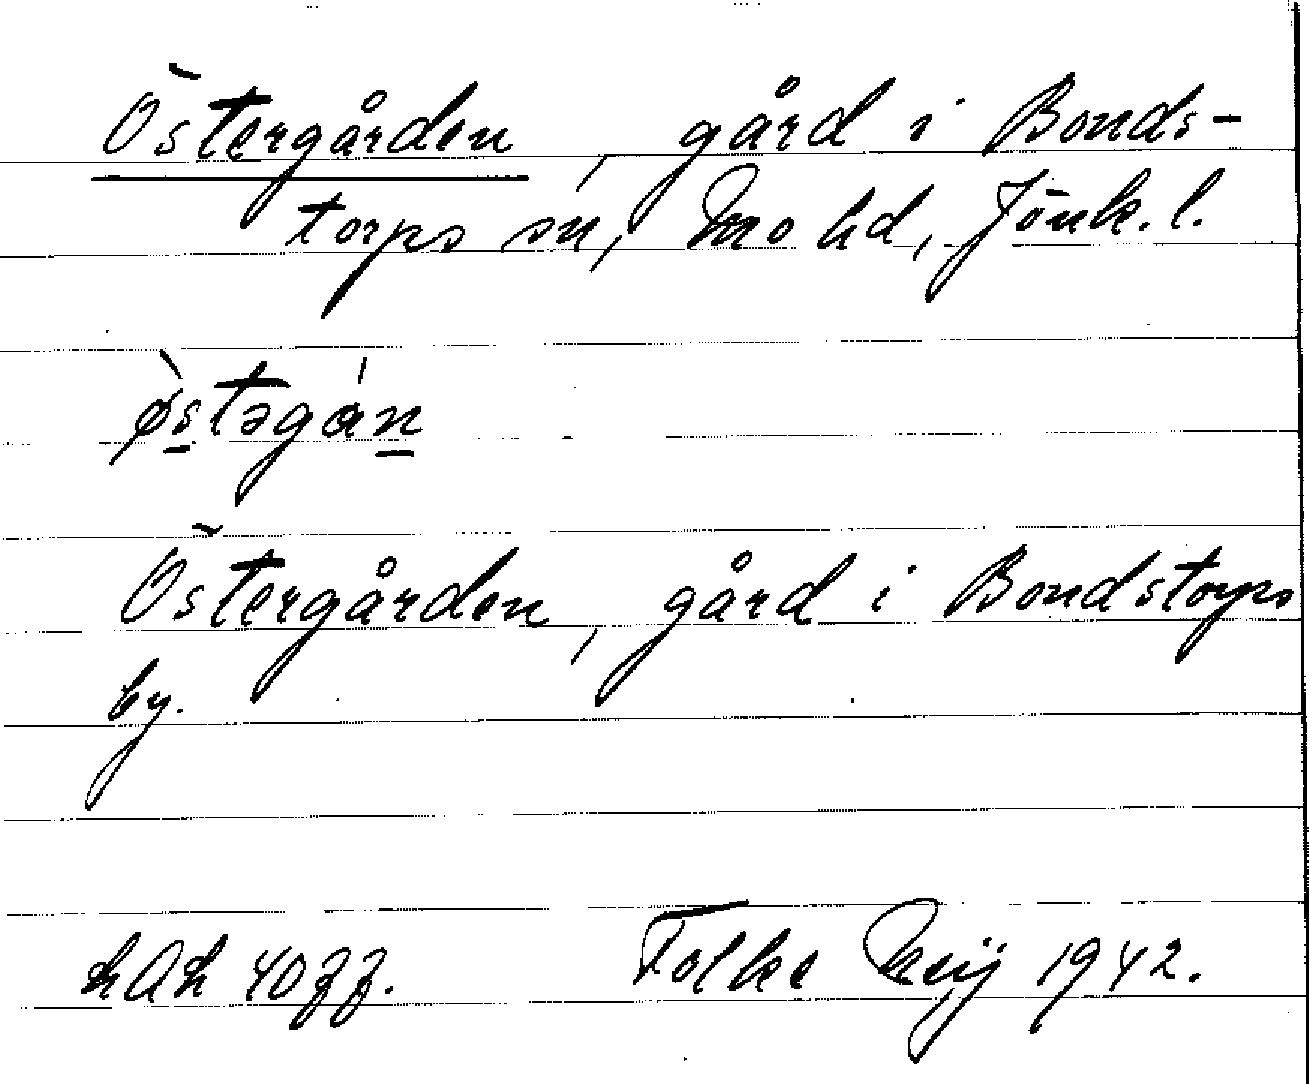 Östergården, gård i Bonds-
torps sn, Mo hd, Jönk. l.
ø̀stəgán
Östergården, gård i Bondstorps
by.
1942.
Folke